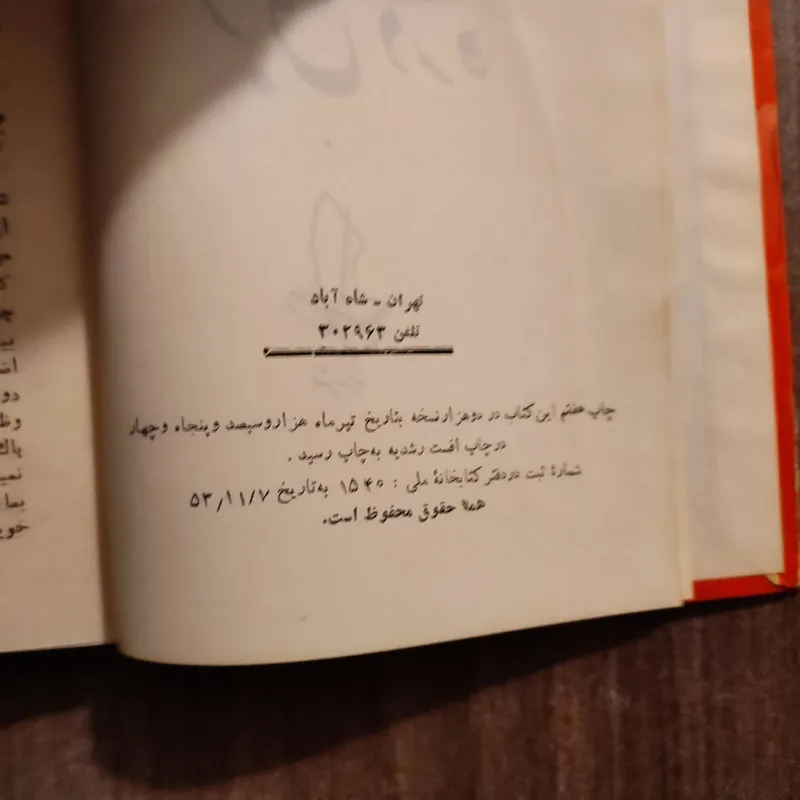 تهران ـ شاه آباد
تلفن ۳۰۲۹۶۳
چاپ هفتم این کتاب در دوهزار نسخه بتاریخ تیرماه هزاروسیصد و پنجاه و چهار
در چاپ افست رشدیه به چاپ رسید .
شمارهٔ ثبت در دفتر کتابخانهٔ ملی : ۱۵۴۰ به تاریخ ۵۳/۱۱/۷
همهٔ حقوق محفوظ است.
دو
وظ
پاك
نمی
بما
خوی